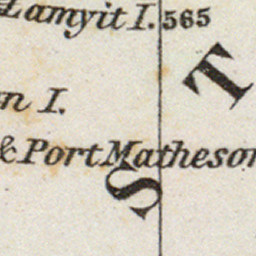 Lamyit I. 565
n I.
& Port Matheson
S T